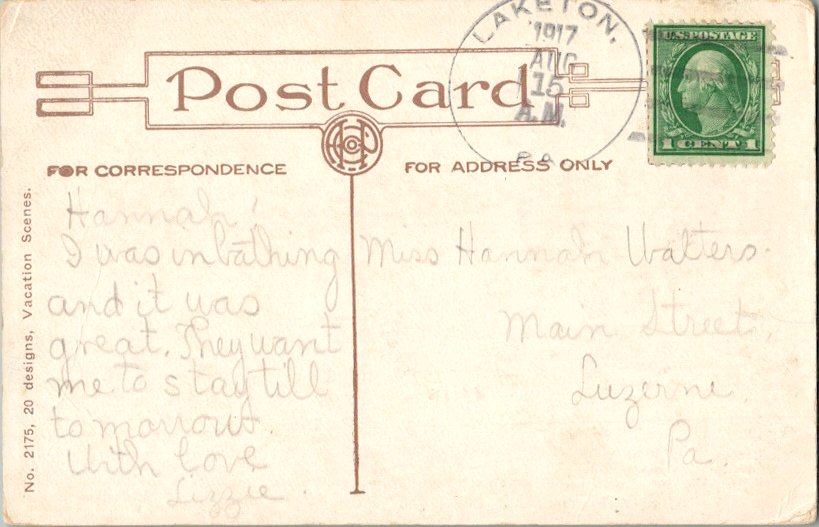 LAKETON,
1917
AUG
15
A.M.
PA
U.S. POSTAGE
1 CENT 1
Post Card
FOR CORRESPONDENCE
FOR ADDRESS ONLY
No. 2175, 20 designs, Vacation Scenes.
Hannah!
I was in bathing
and it was
great. They want
me to stay till
tomorrow.
With love
Lizzie.
Miss Hannah Walters.
Main Street,
Luzerne.
Pa.